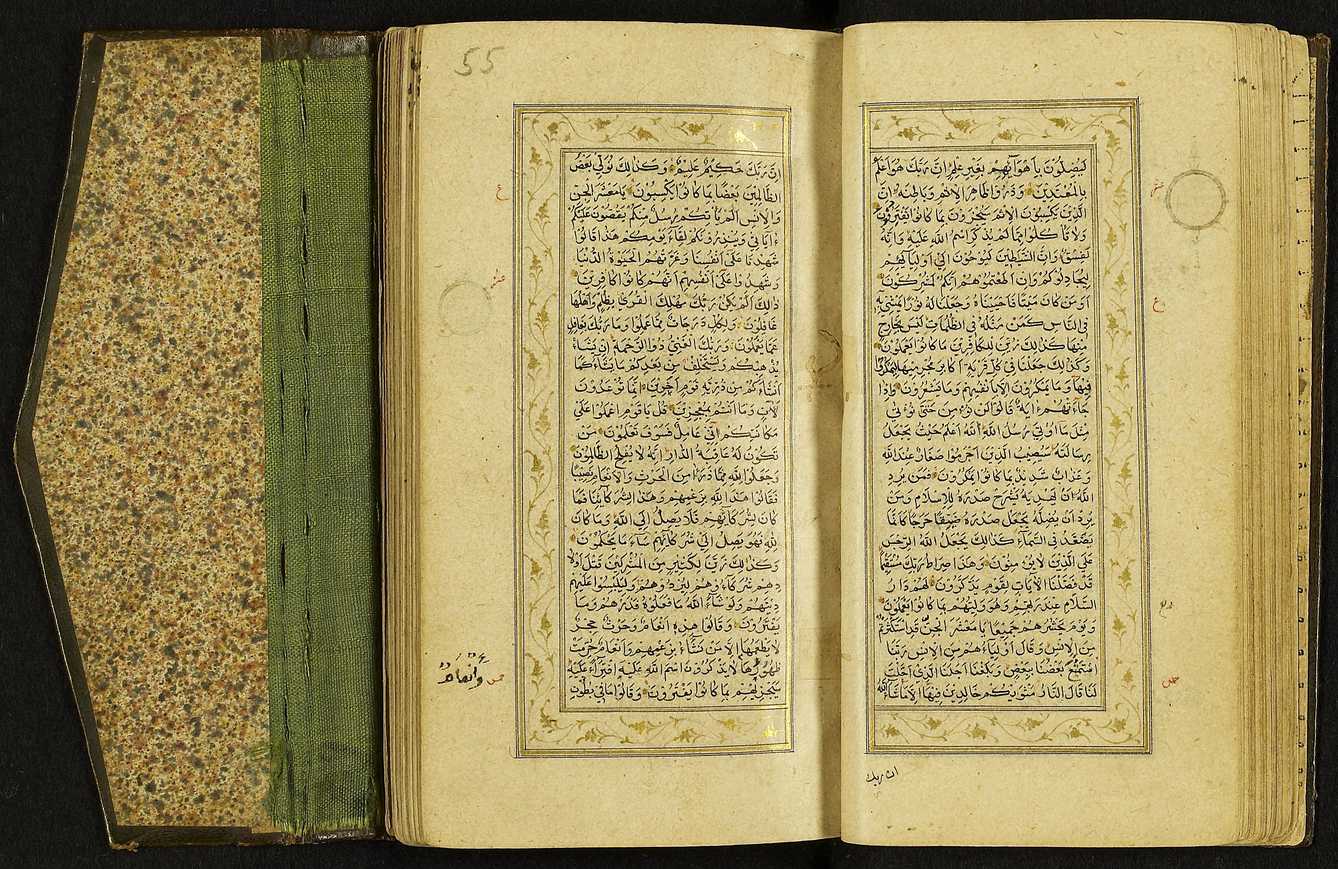 لَيُضِلُّونَ بِأَهْوَآئِهِمْ بِغَيْرِ عِلْمٍ اِنَّ رَبَّكَ هُوَ اَعْلَمُ
بِالْمُعْتَدِينَ وَذَرُوا ظَاهِرَ الْاِثْمِ وَبَاطِنَهُ اِنَّ
الَّذِينَ يَكْسِبُونَ الْاِثْمَ سَيُجْزَوْنَ بِمَا كَانُوا يَقْتَرِفُونَ
وَلَا تَأْكُلُوا مِمَّا لَمْ يُذْكَرِ اسْمُ اللّٰهِ عَلَيْهِ وَاِنَّهُ
لَفِسْقٌ وَاِنَّ الشَّيٰطِينَ لَيُوحُونَ اِلٰى اَوْلِيَآئِهِمْ
لِيُجَادِلُوكُمْ وَاِنْ اَطَعْتُمُوهُمْ اِنَّكُمْ لَمُشْرِكُونَ
اَوَمَنْ كَانَ مَيْتًا فَاَحْيَيْنَاهُ وَجَعَلْنَا لَهُ نُورًا يَمْشِي بِهِ
فِي النَّاسِ كَمَنْ مَثَلُهُ فِي الظُّلُمَاتِ لَيْسَ بِخَارِجٍ
مِنْهَا كَذٰلِكَ زُيِّنَ لِلْكَافِرِينَ مَا كَانُوا يَعْمَلُونَ
وَكَذٰلِكَ جَعَلْنَا فِي كُلِّ قَرْيَةٍ اَكَابِرَ مُجْرِمِيهَا لِيَمْكُرُوا
فِيهَا وَمَا يَمْكُرُونَ اِلَّا بِاَنْفُسِهِمْ وَمَا يَشْعُرُونَ وَاِذَا
جَاءَتْهُمْ اٰيَةٌ قَالُوا لَنْ نُؤْمِنَ حَتّٰى نُؤْتٰى
مِثْلَ مَا اُوتِيَ رُسُلُ اللّٰهِ اَللّٰهُ اَعْلَمُ حَيْثُ يَجْعَلُ
رِسَالَتَهُ سَيُصِيبُ الَّذِينَ اَجْرَمُوا صَغَارٌ عِنْدَ اللّٰهِ
وَعَذَابٌ شَدِيدٌ بِمَا كَانُوا يَمْكُرُونَ فَمَنْ يُرِدِ
اللّٰهُ اَنْ يَهْدِيَهُ يَشْرَحْ صَدْرَهُ لِلْاِسْلَامِ وَمَنْ
يُرِدْ اَنْ يُضِلَّهُ يَجْعَلْ صَدْرَهُ ضَيِّقًا حَرَجًا كَاَنَّمَا
يَصَّعَّدُ فِي السَّمَآءِ كَذٰلِكَ يَجْعَلُ اللّٰهُ الرِّجْسَ
عَلَى الَّذِينَ لَا يُؤْمِنُونَ وَهٰذَا صِرَاطُ رَبِّكَ مُسْتَقِيمًا
قَدْ فَصَّلْنَا الْاٰيَاتِ لِقَوْمٍ يَذَّكَّرُونَ لَهُمْ دَارُ
السَّلَامِ عِنْدَ رَبِّهِمْ وَهُوَ وَلِيُّهُمْ بِمَا كَانُوا يَعْمَلُونَ
وَيَوْمَ يَحْشُرُهُمْ جَمِيعًا يَا مَعْشَرَ الْجِنِّ قَدِ اسْتَكْثَرْتُمْ
مِنَ الْاِنْسِ وَقَالَ اَوْلِيَاءُهُمْ مِنَ الْاِنْسِ رَبَّنَا
اسْتَمْتَعَ بَعْضُنَا بِبَعْضٍ وَبَلَغْنَا اَجَلَنَا الَّذِي اَجَّلْتَ
لَنَا قَالَ النَّارُ مَثْوٰيكُمْ خَالِدِينَ فِيهَا اِلَّا مَا شَآءَ اللّٰهُ
ان ربك
55
اِنَّ رَبَّكَ حَكِيمٌ عَلِيمٌ وَكَذٰلِكَ نُوَلِّي بَعْضَ
الظَّالِمِينَ بَعْضًا بِمَا كَانُوا يَكْسِبُونَ يَامَعْشَرَ الْجِنِّ
وَالْاِنْسِ اَلَمْ يَأْتِكُمْ رُسُلٌ مِنْكُمْ يَقُصُّونَ عَلَيْكُمْ
اٰيَاتِي وَيُنْذِرُونَكُمْ لِقَآءَ يَوْمِكُمْ هٰذَا قَالُوا
شَهِدْنَا عَلٰى اَنْفُسِنَا وَغَرَّتْهُمُ الْحَيٰوةُ الدُّنْيَا
وَشَهِدُوا عَلٰى اَنْفُسِهِمْ اَنَّهُمْ كَانُوا كَافِرِينَ
ذٰلِكَ اَنْ لَمْ يَكُنْ رَبُّكَ مُهْلِكَ الْقُرٰى بِظُلْمٍ وَاَهْلُهَا
غَافِلُونَ وَلِكُلٍّ دَرَجَاتٌ مِمَّا عَمِلُوا وَمَا رَبُّكَ بِغَافِلٍ
عَمَّا يَعْمَلُونَ وَرَبُّكَ الْغَنِيُّ ذُو الرَّحْمَةِ اِنْ يَشَأْ
يُذْهِبْكُمْ وَيَسْتَخْلِفْ مِنْ بَعْدِكُمْ مَا يَشَآءُ كَمَا
اَنْشَاَكُمْ مِنْ ذُرِّيَّةِ قَوْمٍ اٰخَرِينَ اِنَّمَا تُوعَدُونَ
لَاٰتٍ وَمَا اَنْتُمْ بِمُعْجِزِينَ قُلْ يَا قَوْمِ اعْمَلُوا عَلٰى
مَكَانَتِكُمْ اِنِّي عَامِلٌ فَسَوْفَ تَعْلَمُونَ مَنْ
تَكُونُ لَهُ عَاقِبَةُ الدَّارِ اِنَّهُ لَا يُفْلِحُ الظَّالِمُونَ
وَجَعَلُوا لِلّٰهِ مِمَّا ذَرَاَ مِنَ الْحَرْثِ وَالْاَنْعَامِ نَصِيبًا
فَقَالُوا هٰذَا لِلّٰهِ بِزَعْمِهِمْ وَهٰذَا لِشُرَكَآئِنَا فَمَا
كَانَ لِشُرَكَآئِهِمْ فَلَا يَصِلُ اِلَى اللّٰهِ وَمَا كَانَ
لِلّٰهِ فَهُوَ يَصِلُ اِلٰى شُرَكَآئِهِمْ سَآءَ مَا يَحْكُمُونَ
وَكَذٰلِكَ زَيَّنَ لِكَثِيرٍ مِنَ الْمُشْرِكِينَ قَتْلَ اَوْلَا
دِهِمْ شُرَكَآؤُهُمْ لِيُرْدُوهُمْ وَلِيَلْبِسُوا عَلَيْهِمْ
دِينَهُمْ وَلَوْ شَآءَ اللّٰهُ مَا فَعَلُوهُ فَذَرْهُمْ وَمَا
يَفْتَرُونَ وَقَالُوا هٰذِهِ اَنْعَامٌ وَحَرْثٌ حِجْرٌ
لَا يَطْعَمُهَا اِلَّا مَنْ نَشَآءُ بِزَعْمِهِمْ وَاَنْعَامٌ حُرِّمَتْ
ظُهُورُهَا لَا يَذْكُرُونَ اسْمَ اللّٰهِ عَلَيْهِ افْتِرَآءً عَلَيْهِ
سَيَجْزِيهِمْ بِمَا كَانُوا يَفْتَرُونَ وَقَالُوا مَا فِي بُطُونِ
وَاَنْعَامٌ